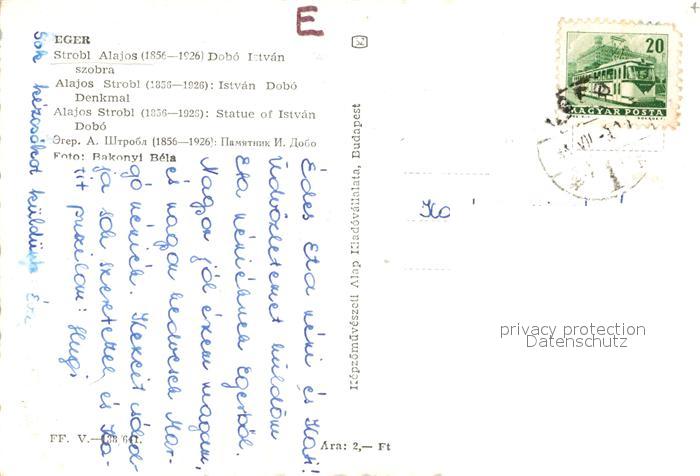 E
EGER
Strobl Alajos (1856—1926) Dobó István
szobra
Alajos Strobl (1856—1926): István Dobó
Denkmal
Alajos Strobl (1856—1926): Statue of István
Dobó
Эгер. А. Штробл (1856—1926): Памятник И. Добо
Foto: Bakonyi Béla
Édes Eta néni és Kati!
Üdvözletemet küldöm
Eta néniének Egerből.
Nagyon jól érzem magam,
és nagyon kedvesek Mar-
gó néniék. Kezeit csókol-
ja sok szeretettel és Ka-
tit puszilom: Hugi
Sok kézcsókot küldünk: Évi
FF. V.—
Ára: 2,— Ft
Képzőművészeti Alap Kiadóvállalata, Budapest
20
MAGYAR POSTA
privacy protection
Datenschutz